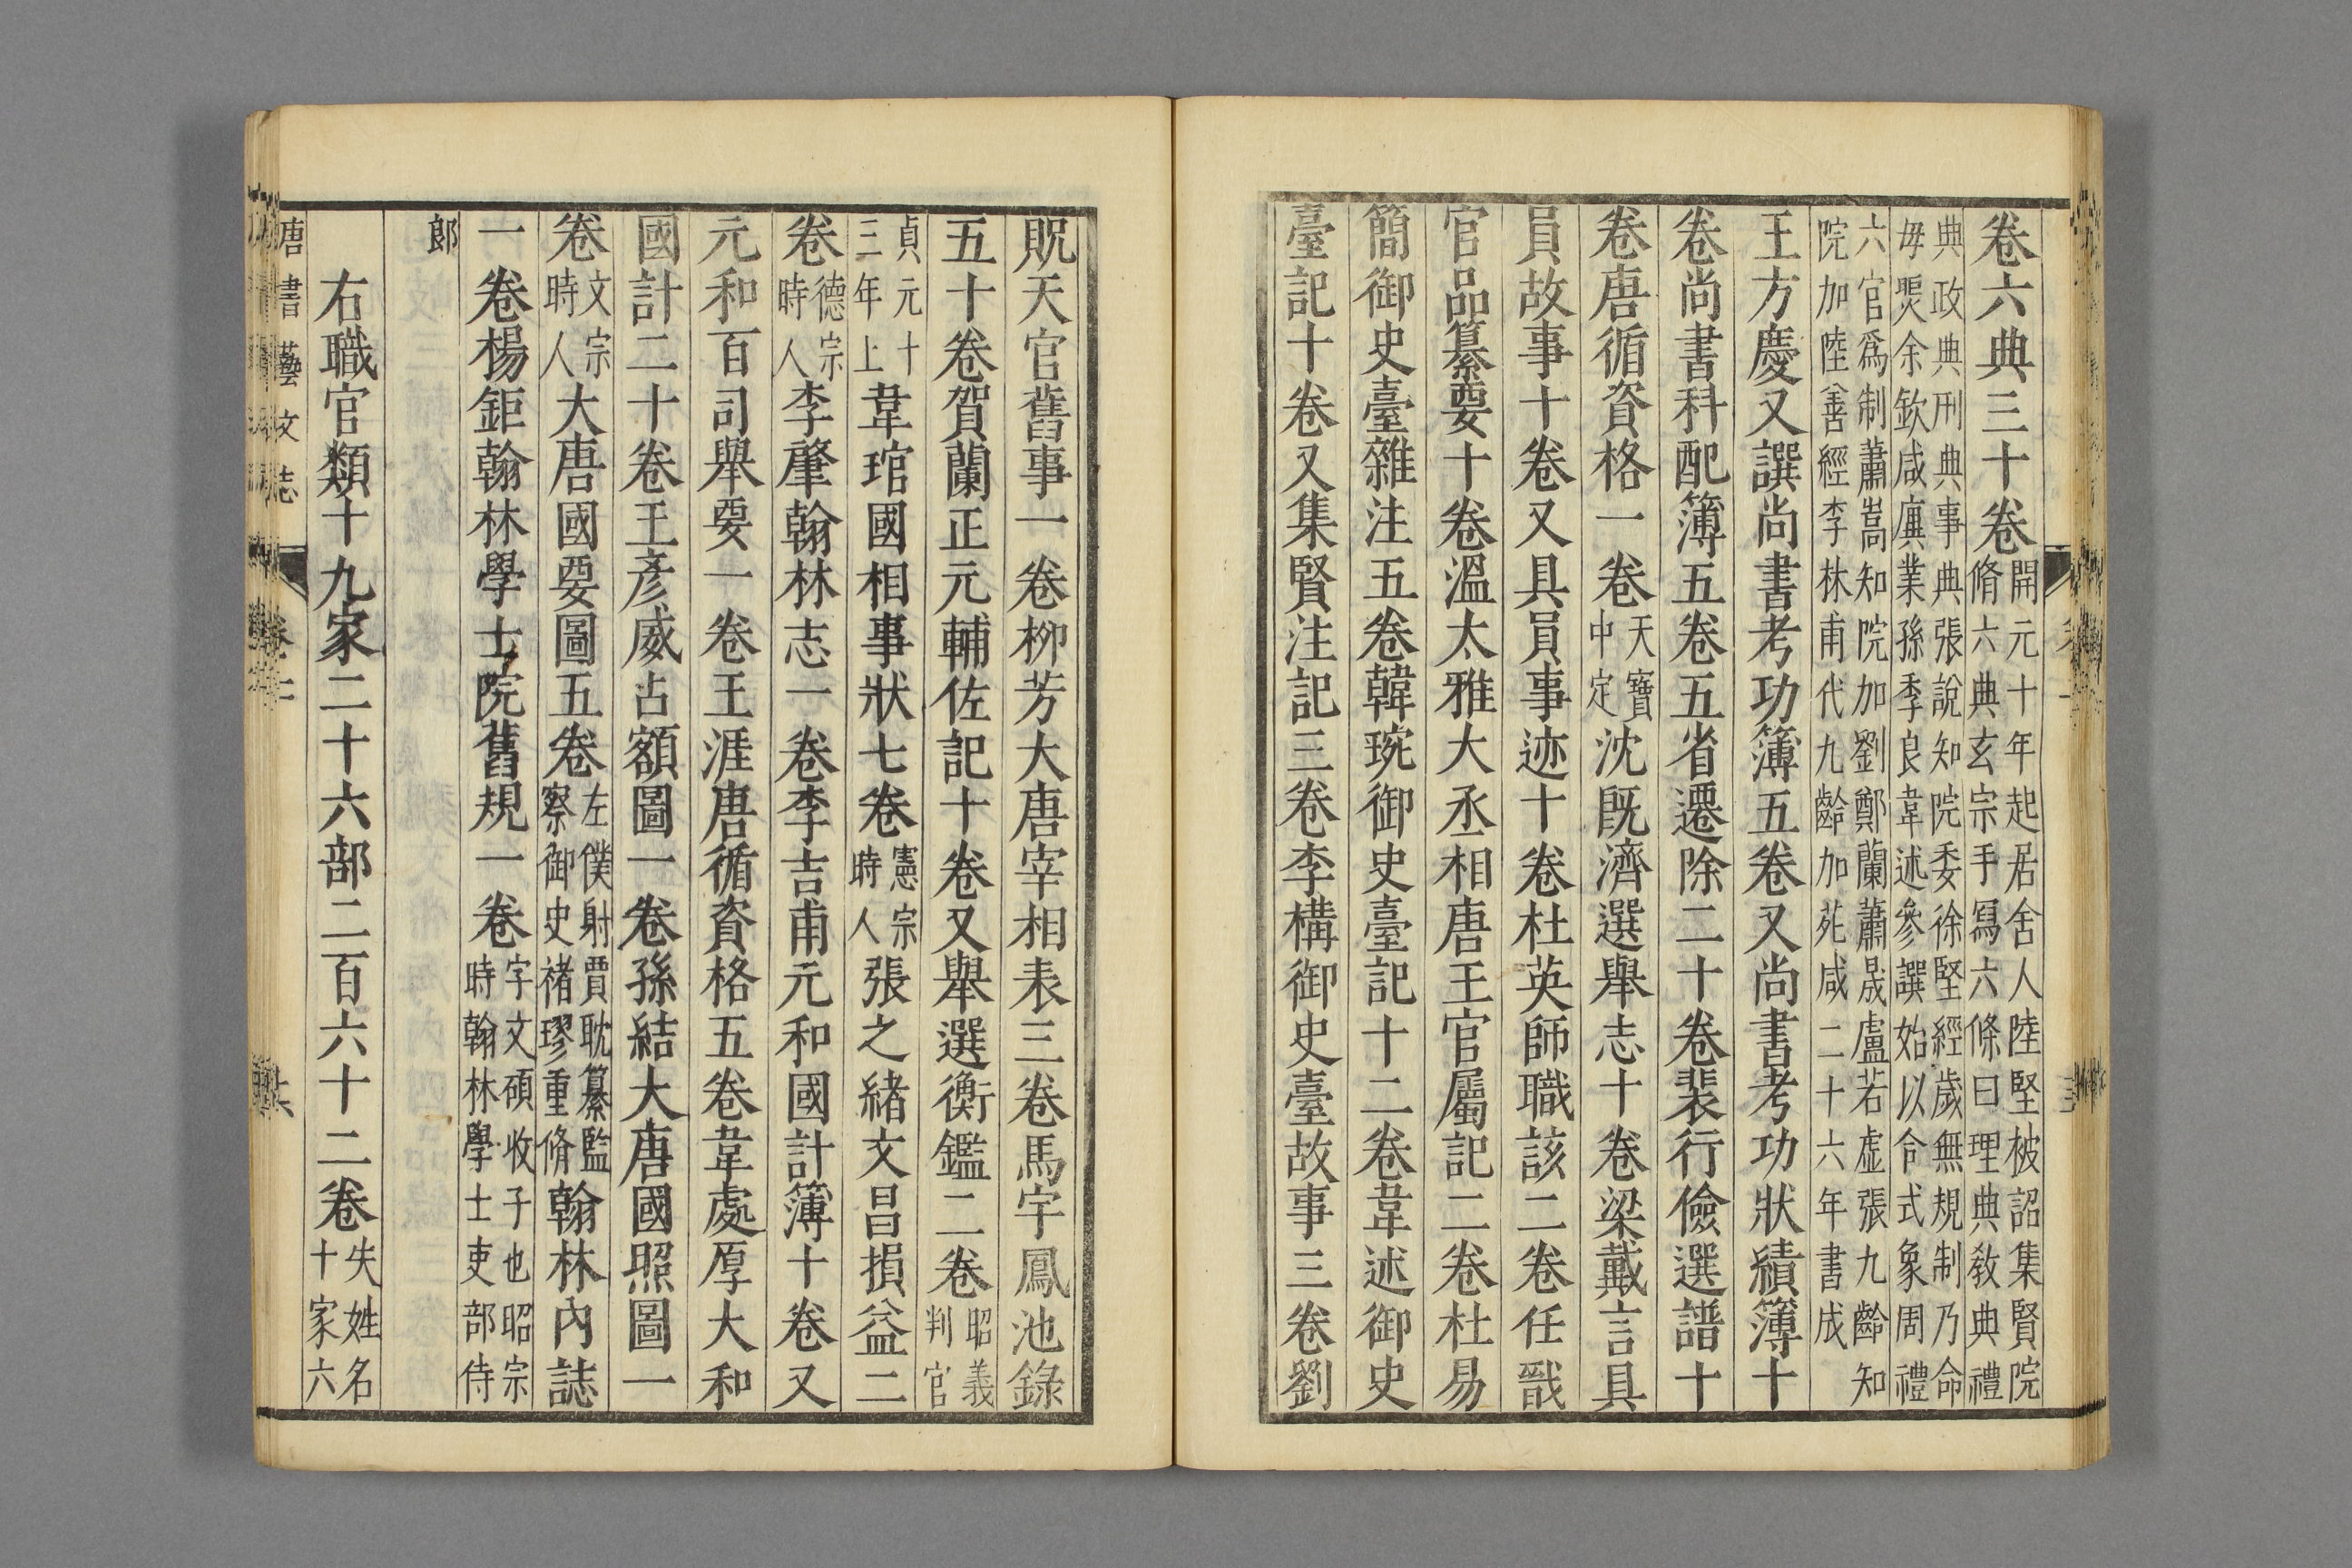 卷六典三十卷開元十年起居舍人陸堅被詔集賢院
脩六典玄宗手寫六條曰理典教典禮
典政典刑典事典張說知院委徐堅經歲無規制乃命
毋煚余欽咸廙業孫季良韋述參譔始以令式象周禮
六官爲制蕭嵩知院加劉鄭蘭蕭晟盧若虛張九齡知
院加陸善經李林甫代九齡加苑咸二十六年書成
王方慶又譔尚書考功簿五卷又尚書考功狀績簿十
卷尚書科配簿五卷五省遷除二十卷裴行儉選譜十
卷唐循資格一卷天寶
中定沈旣濟選舉志十卷梁戴言具
員故事十卷又具員事迹十卷杜英師職該二卷任戩
官品纂要十卷溫太雅大丞相唐王官屬記二卷杜易
簡御史臺雜注五卷韓琬御史臺記十二卷韋述御史
臺記十卷又集賢注記三卷李構御史臺故事三卷劉
貺天官舊事一卷柳芳大唐宰相表三卷馬宇鳳池錄
五十卷賀蘭正元輔佐記十卷又舉選衡鑑二卷昭義
判官
貞元十
三年上韋琯國相事狀七卷憲宗
時人張之緒文昌損益二
卷德宗
時人李肇翰林志一卷李吉甫元和國計簿十卷又
元和百司舉要一卷王涯唐循資格五卷韋處厚大和
國計二十卷王彥威占額圖一卷孫結大唐國照圖一
卷文宗
時人大唐國要圖五卷左僕射賈耽纂監
察御史褚璆重脩翰林內誌
一卷楊鉅翰林學士院舊規一卷字文碩收子也昭宗
時翰林學士吏部侍
郎
右職官類十九家二十六部二百六十二卷失姓名
十家六
唐書藝文志 卷二 六